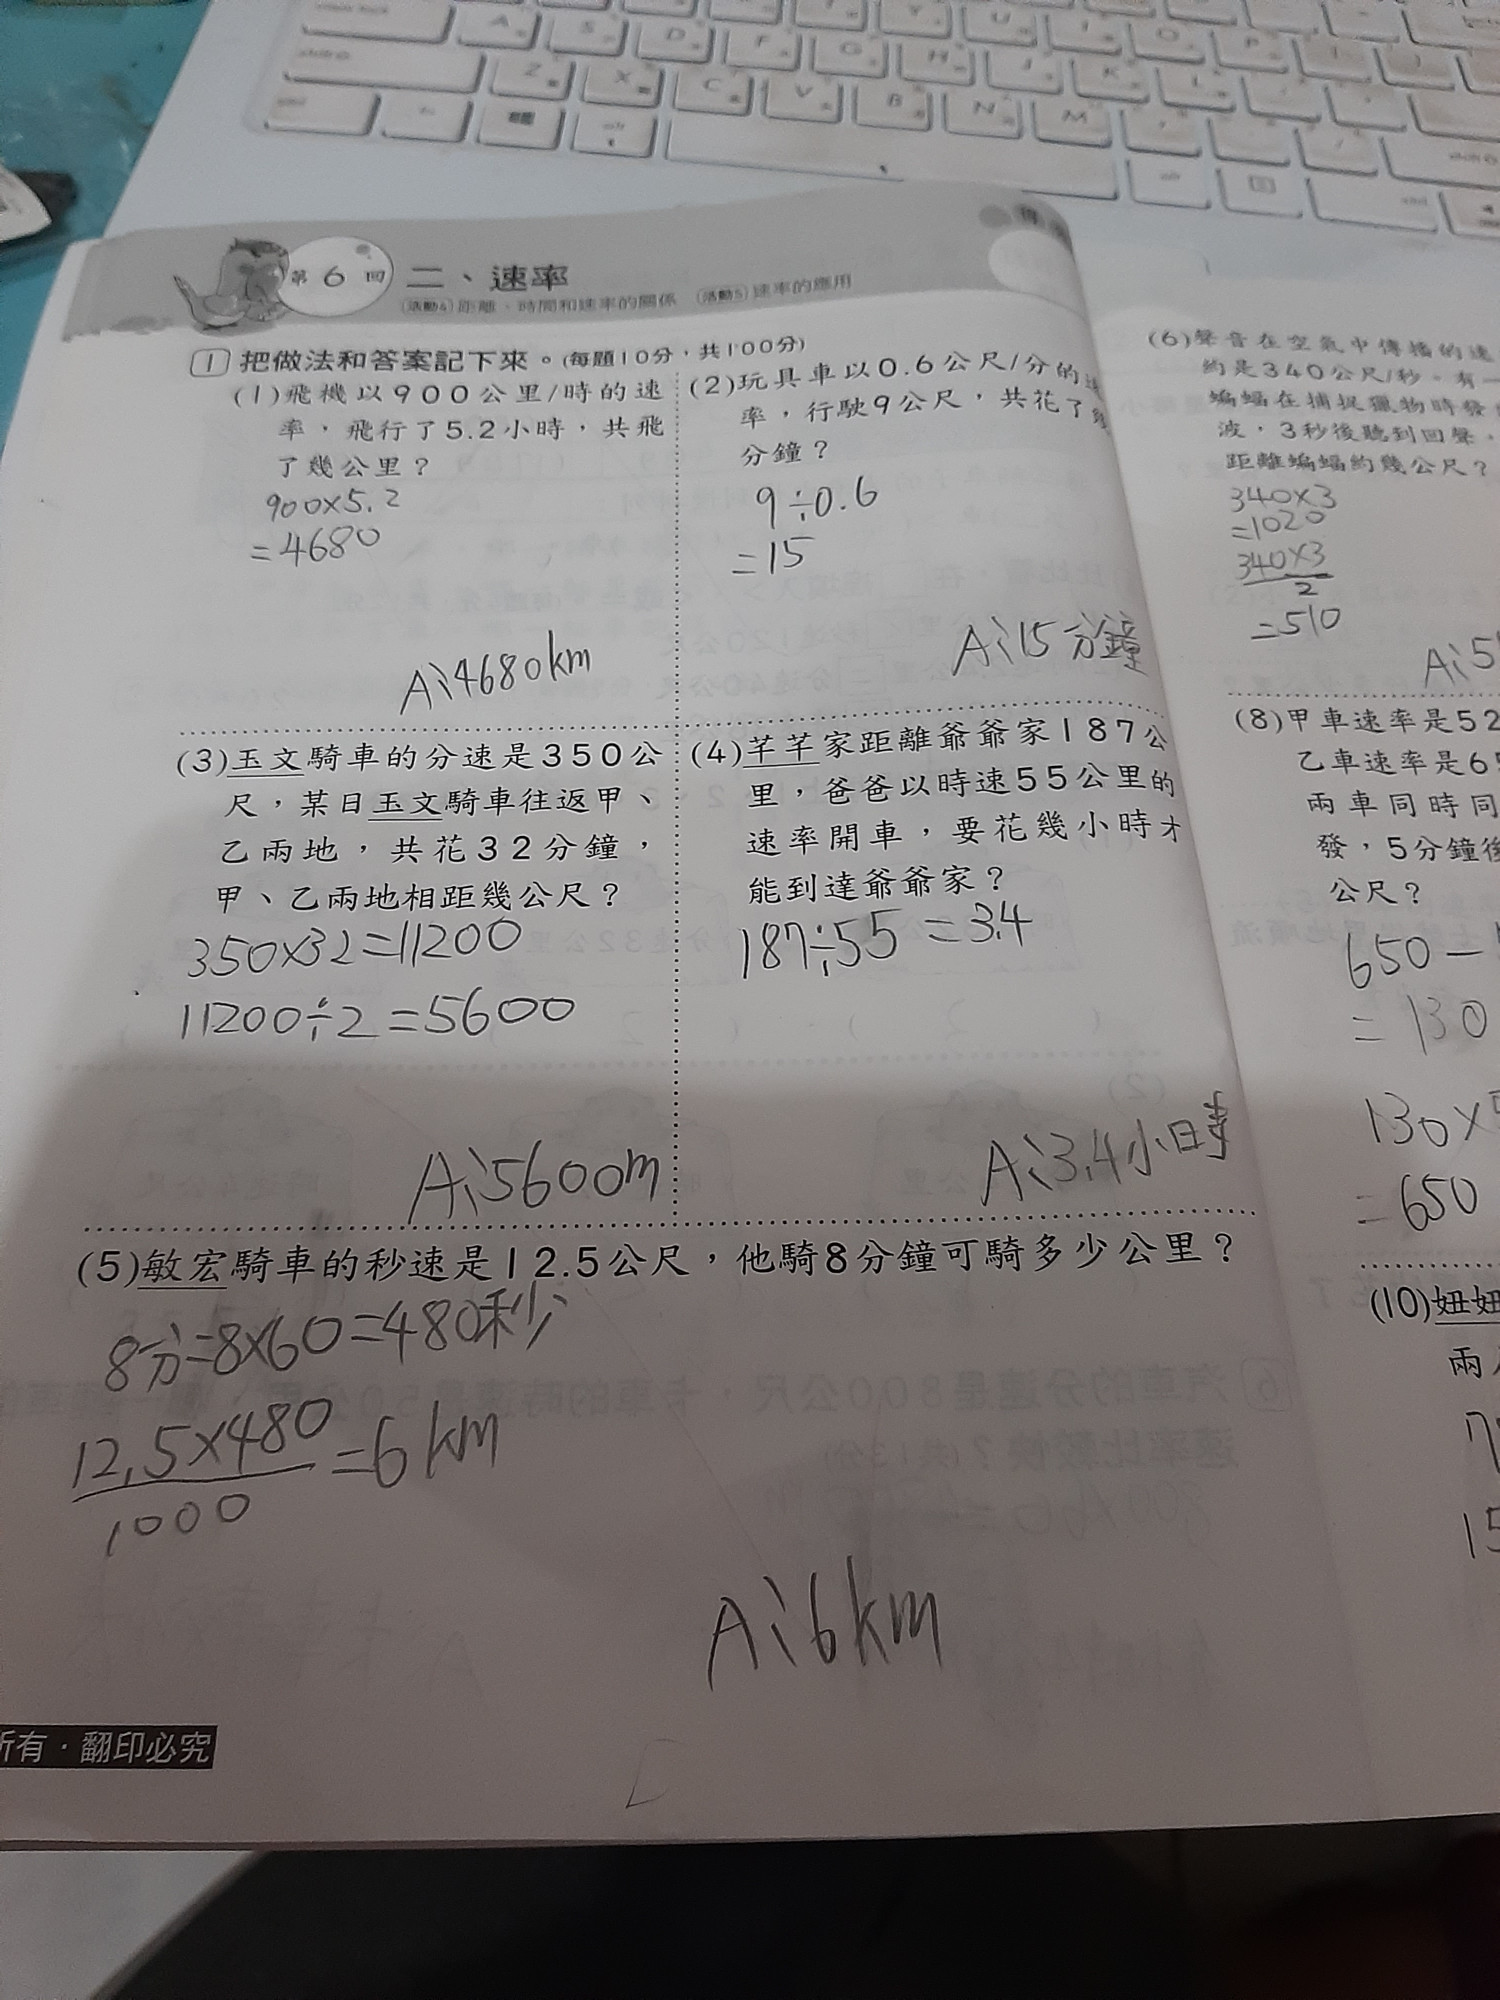 第6回
二、速率
活動4 距離、時間和速率的關係 活動5 速率的應用
1 把做法和答案記下來。(每題10分,共100分)
(1)飛機以900公里/時的速
率,飛行了5.2小時,共飛
了幾公里?
900×5.2
=4680
A:4680km
(2)玩具車以0.6公尺/分的速
率,行駛9公尺,共花了
分鐘?
9÷0.6
=15
A:15分鐘
(3)玉文騎車的分速是350公
尺,某日玉文騎車往返甲、
乙兩地,共花32分鐘,
甲、乙兩地相距幾公尺?
350×32=11200
11200÷2=5600
A:5600m
(4)芊芊家距離爺爺家187公
里,爸爸以時速55公里的
速率開車,要花幾小時才
能到達爺爺家?
187÷55=3.4
A:3.4小時
(5)敏宏騎車的秒速是12.5公尺,他騎8分鐘可騎多少公里?
8分=8×60=480秒
12.5×480
=6km
1000
A:6km
所有・翻印必究
(6)聲音在空氣中傳播的速
約是340公尺/秒。有一
蝙蝠在捕捉獵物時發
波,3秒後聽到回聲,
距離蝙蝠約幾公尺?
340×3
=1020
340×3
2
=510
A:5
(8)甲車速率是52
乙車速率是65
兩車同時同
發,5分鐘後
公尺?
650-
=130
130×
=650
(10)妞妞
兩
15